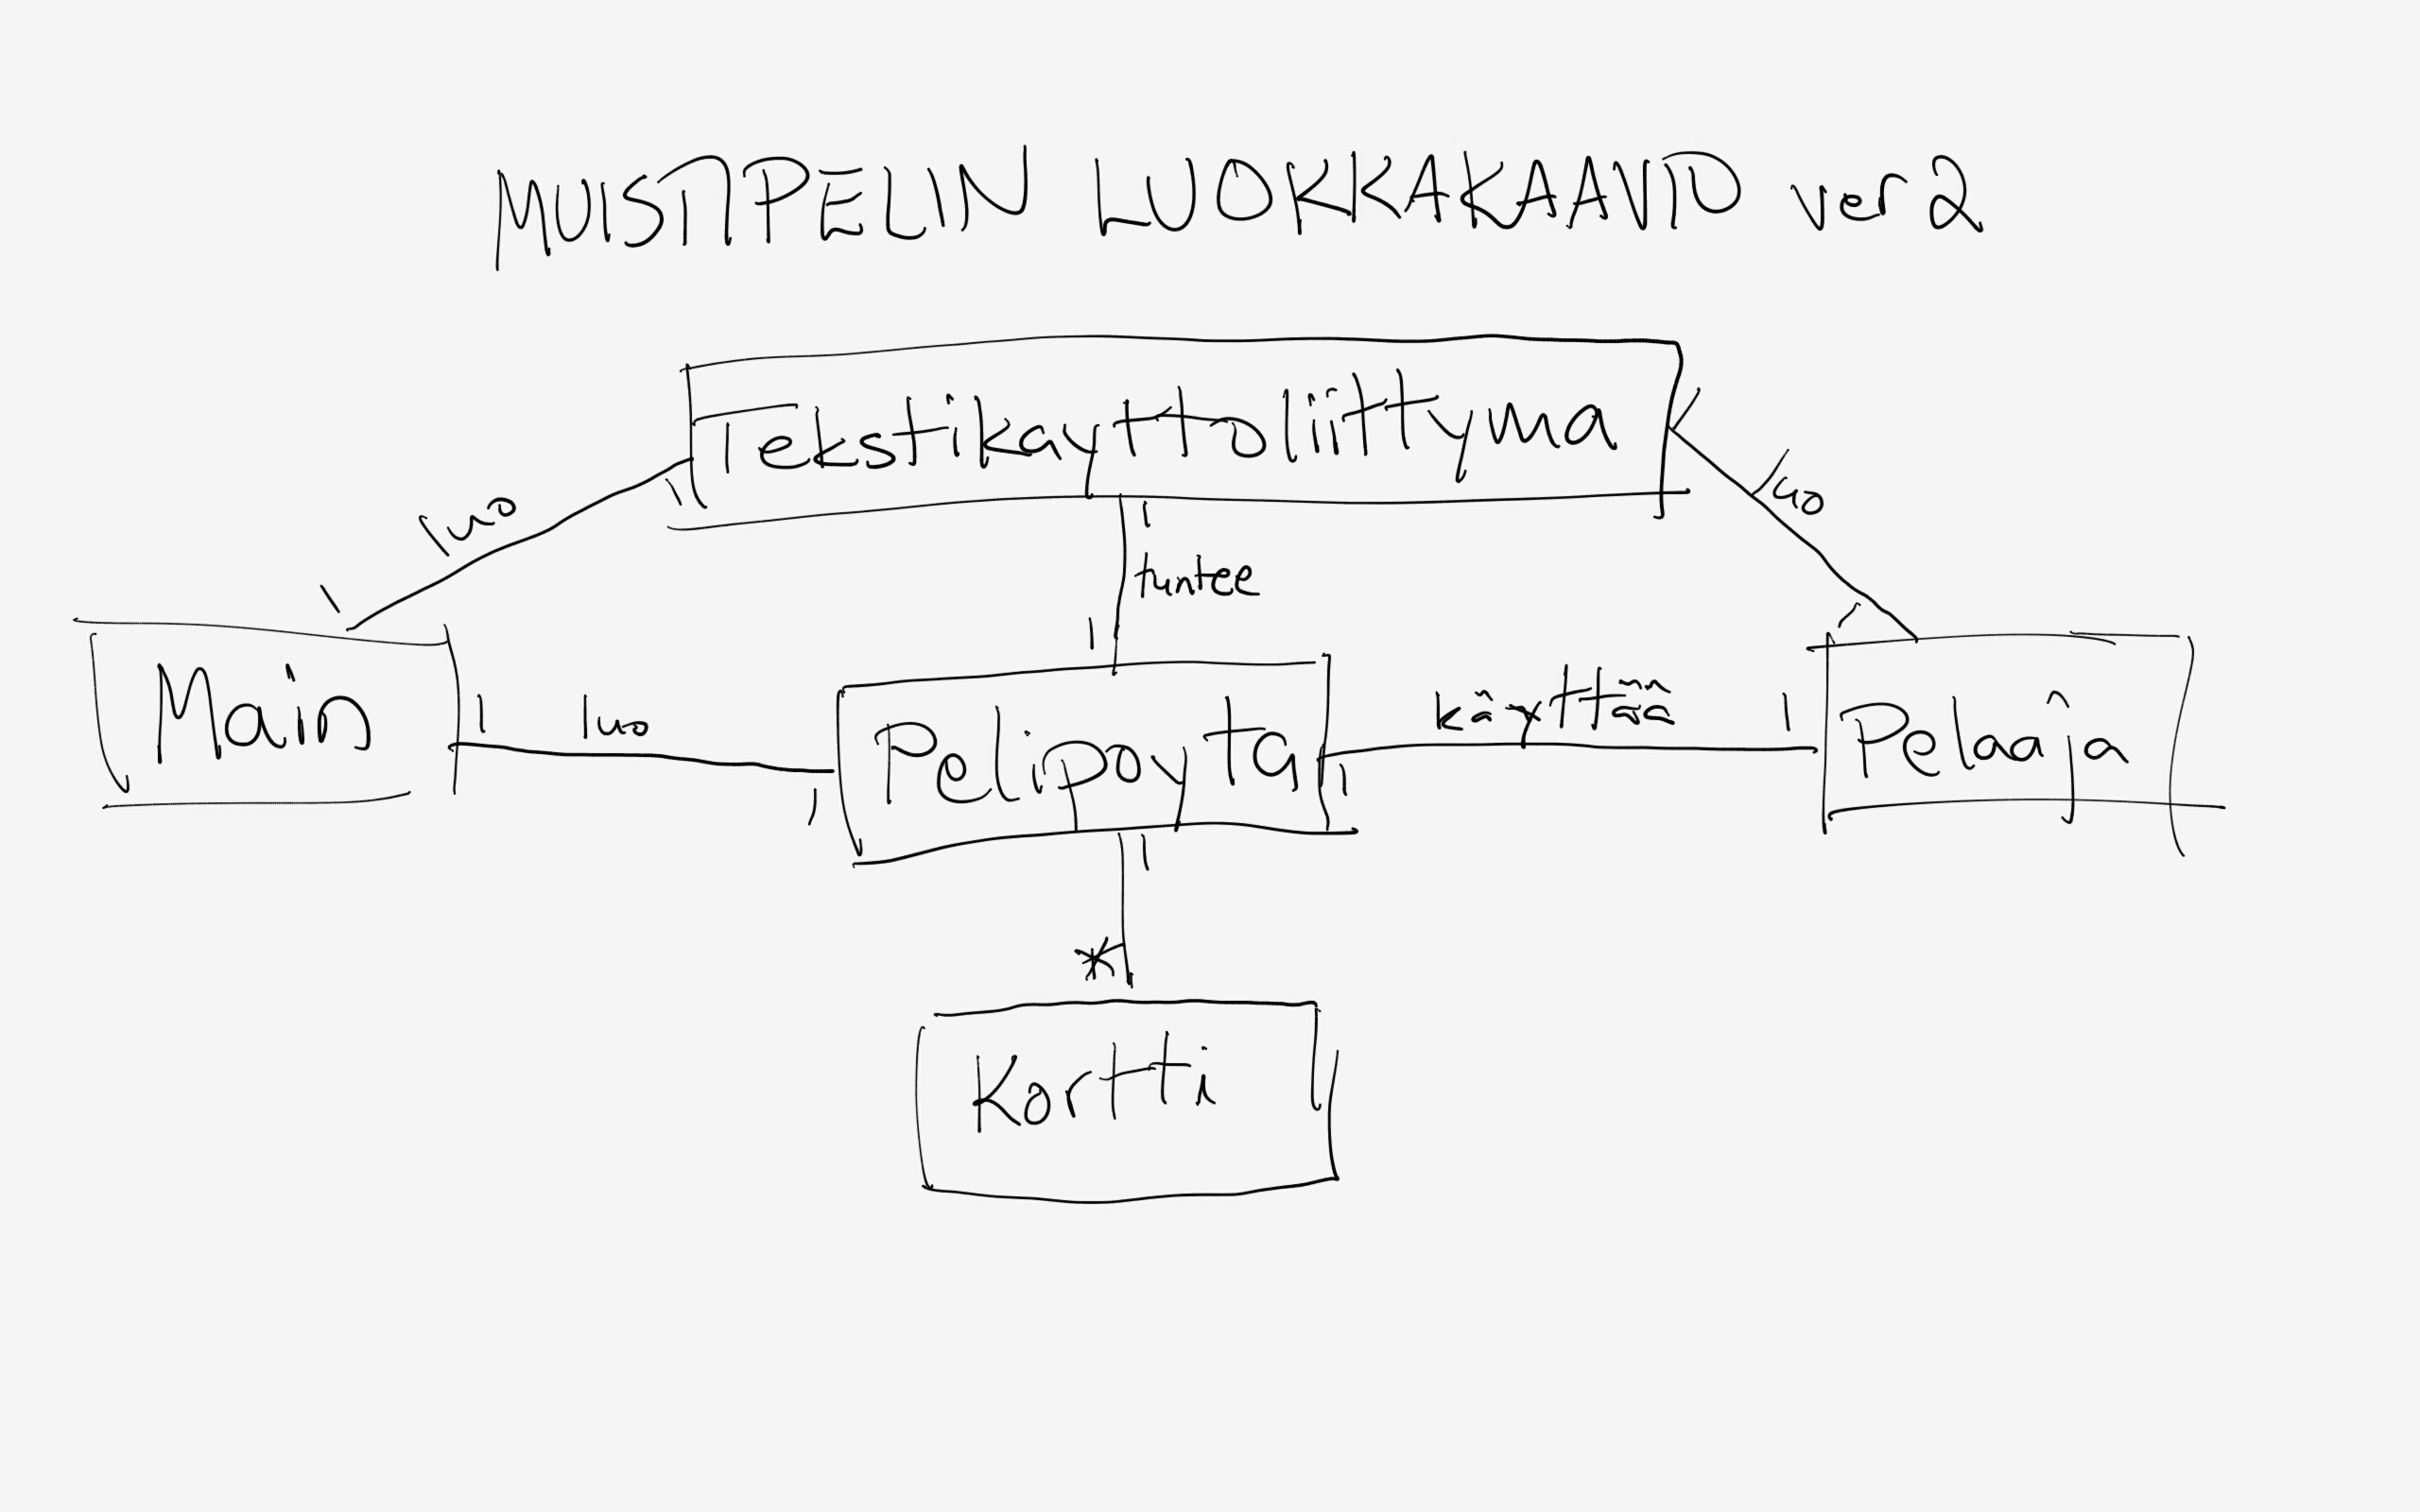 MUISTIPELIN LUOKKAKAAVIO ver 2
Tekstikayttoliittyma
1
luo
1
luo
1
1
tuntee
1
Main
1
luo
1
Pelipoyta
1
käyttää
1
Pelaaja
1
1
*
Kortti